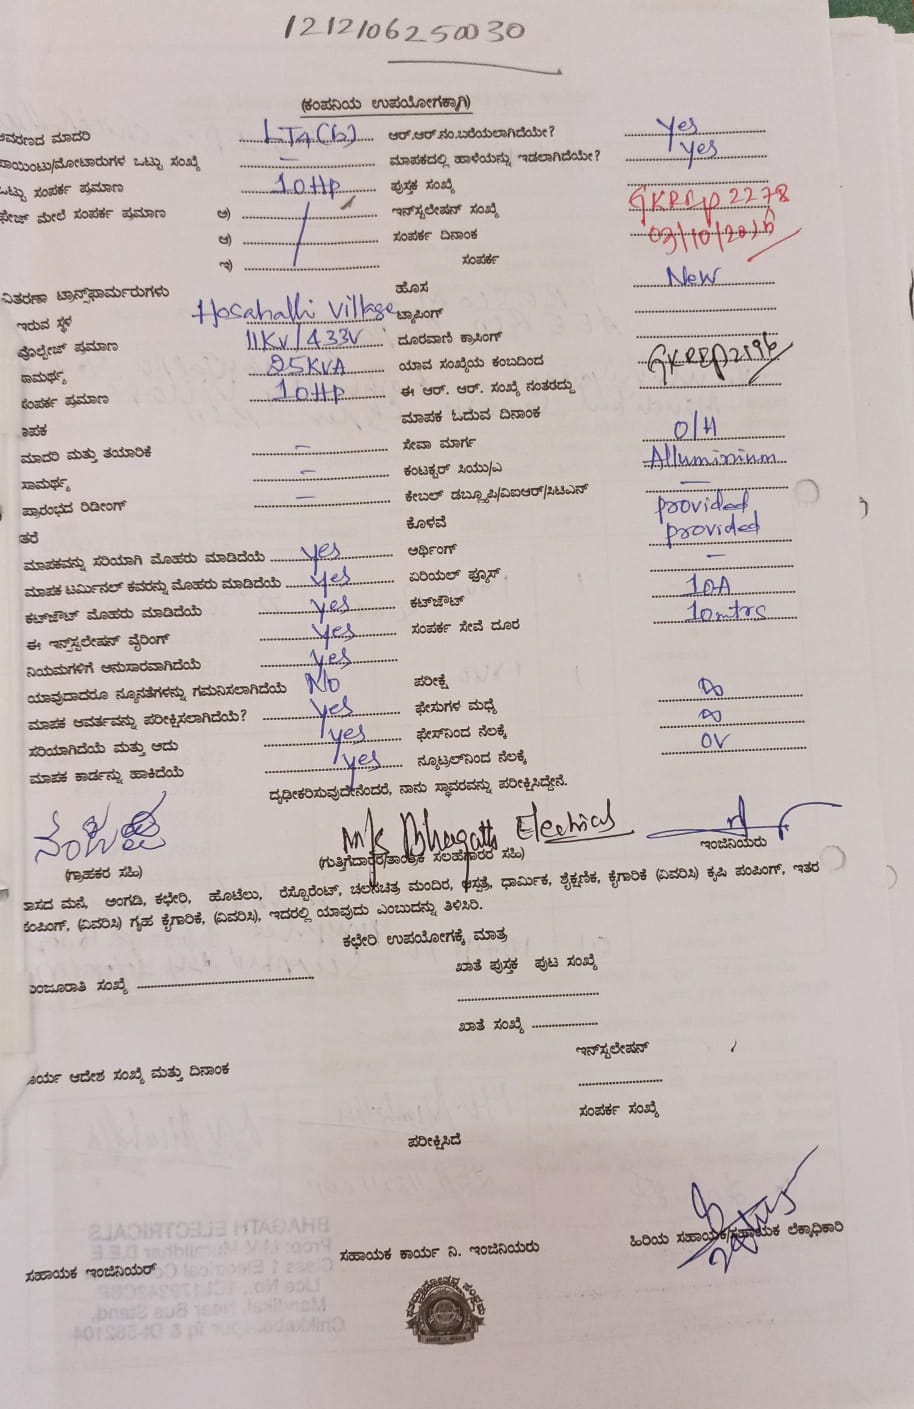 1212106250030
(ಕಂಪನಿಯ ಉಪಯೋಗಕ್ಕಾಗಿ)
ಆವರಣದ ಮಾದರಿ LT4(b) ಆರ್.ಆರ್.ನಂ.ಬರೆಯಲಾಗಿದೆಯೇ? Yes
ಪಾಯಿಂಟು/ಮೋಟಾರುಗಳ ಒಟ್ಟು ಸಂಖ್ಯೆ – ಮಾಪಕದಲ್ಲಿ ಹಾಳೆಯನ್ನು ಇಡಲಾಗಿದೆಯೇ? Yes
ಒಟ್ಟು ಸಂಪರ್ಕ ಪ್ರಮಾಣ 10HP ಪುಸ್ತಕ ಸಂಖ್ಯೆ
ಫೇಜ್ ಮೇಲೆ ಸಂಪರ್ಕ ಪ್ರಮಾಣ ಅ) ಇನ್‌ಸ್ಟಲೇಷನ್ ಸಂಖ್ಯೆ GKRRp2278
ಆ) ಸಂಪರ್ಕ ದಿನಾಂಕ
ಇ) ಸಂಪರ್ಕ
ವಿತರಣಾ ಟ್ರಾನ್ಸ್‌ಫಾರ್ಮರುಗಳು ಹೊಸ New
ಇರುವ ಸ್ಥಳ Hosahalli village ಟ್ಯಾಪಿಂಗ್
ವೊಲ್ಟೇಜ್ ಪ್ರಮಾಣ 11KV/433V ದೂರವಾಣಿ ಕ್ರಾಸಿಂಗ್
ಸಾಮರ್ಥ್ಯ 25KVA ಯಾವ ಸಂಖ್ಯೆಯ ಕಂಬದಿಂದ
ಸಂಪರ್ಕ ಪ್ರಮಾಣ 10HP ಈ ಆರ್. ಆರ್. ಸಂಖ್ಯೆ ನಂತರದ್ದು GKRRp2196
ಮಾಪಕ ಮಾಪಕ ಓದುವ ದಿನಾಂಕ
ಮಾದರಿ ಮತ್ತು ತಯಾರಿಕೆ – ಸೇವಾ ಮಾರ್ಗ O/H
ಸಾಮರ್ಥ್ಯ – ಕಂಟಕ್ಟರ್ ಸಿಯು/ಎ Alluminium
ಪ್ರಾರಂಭದ ರಿಡೀಂಗ್ – ಕೇಬಲ್ ಡಬ್ಲ್ಯೂಪಿ/ವಿಐಆರ್/ಸಿಟಿಎಸ್ –
ತರೆ ಕೊಳವೆ provided
ಮಾಪಕವನ್ನು ಸರಿಯಾಗಿ ಮೊಹರು ಮಾಡಿದೆಯೆ Yes ಅರ್ಥಿಂಗ್ provided
ಮಾಪಕ ಟರ್ಮಿನಲ್ ಕವರನ್ನು ಮೊಹರು ಮಾಡಿದೆಯೆ Yes ಏರಿಯಲ್ ಫ್ಯೂಸ್ –
ಕಟ್‌ಔಟ್ ಮೊಹರು ಮಾಡಿದೆಯೆ Yes ಕಟ್‌ಔಟ್ 10A
ಈ ಇನ್‌ಸ್ಟಲೇಷನ್ ವೈರಿಂಗ್ Yes ಸಂಪರ್ಕ ಸೇವೆ ದೂರ 10mtrs
ನಿಯಮಗಳಿಗೆ ಅನುಸಾರವಾಗಿದೆಯೆ Yes
ಯಾವುದಾದರೂ ನ್ಯೂನತೆಗಳನ್ನು ಗಮನಿಸಲಾಗಿದೆಯೆ No ಪರೀಕ್ಷೆ
ಮಾಪಕ ಆವರ್ತವನ್ನು ಪರೀಕ್ಷಿಸಲಾಗಿದೆಯೆ? Yes ಫೇಸುಗಳ ಮಧ್ಯೆ ∞
ಸರಿಯಾಗಿದೆಯೆ ಮತ್ತು ಅದು Yes ಫೇಸ್‌ನಿಂದ ನೆಲಕ್ಕೆ ∞
ಮಾಪಕ ಕಾರ್ಡನ್ನು ಹಾಕಿದೆಯೆ Yes ನ್ಯೂಟ್ರಲ್‌ನಿಂದ ನೆಲಕ್ಕೆ 0V
ದೃಢೀಕರಿಸುವುದೇನೆಂದರೆ, ನಾನು ಸ್ಥಾವರವನ್ನು ಪರೀಕ್ಷಿಸಿದ್ದೇನೆ.
M/s Bhagath Electricals
(ಗ್ರಾಹಕರ ಸಹಿ) (ಗುತ್ತಿಗೆದಾರರ/ತಾಂತ್ರಿಕ ಸಲಹೆಗಾರರ ಸಹಿ) ಇಂಜಿನಿಯರು
ವಾಸದ ಮನೆ, ಅಂಗಡಿ, ಕಛೇರಿ, ಹೊಟೆಲು, ರೆಸ್ಟೊರೆಂಟ್, ಚಲನಚಿತ್ರ ಮಂದಿರ, ಆಸ್ಪತ್ರೆ, ಧಾರ್ಮಿಕ, ಶೈಕ್ಷಣಿಕ, ಕೈಗಾರಿಕೆ (ವಿವರಿಸಿ) ಕೃಷಿ ಪಂಪಿಂಗ್, ಇತರ
ಪಂಪಿಂಗ್, (ವಿವರಿಸಿ) ಗೃಹ ಕೈಗಾರಿಕೆ, (ವಿವರಿಸಿ), ಇದರಲ್ಲಿ ಯಾವುದು ಎಂಬುದನ್ನು ತಿಳಿಸಿರಿ.
ಕಛೇರಿ ಉಪಯೋಗಕ್ಕೆ ಮಾತ್ರ
ಖಾತೆ ಪುಸ್ತಕ ಪುಟ ಸಂಖ್ಯೆ
ಮಂಜೂರಾತಿ ಸಂಖ್ಯೆ
ಖಾತೆ ಸಂಖ್ಯೆ
ಇನ್‌ಸ್ಟಲೇಷನ್
ಕಾರ್ಯ ಆದೇಶ ಸಂಖ್ಯೆ ಮತ್ತು ದಿನಾಂಕ
ಸಂಪರ್ಕ ಸಂಖ್ಯೆ
ಪರೀಕ್ಷಿಸಿದೆ
ಸಹಾಯಕ ಇಂಜಿನಿಯರ್ ಸಹಾಯಕ ಕಾರ್ಯ ನಿ. ಇಂಜಿನಿಯರು ಹಿರಿಯ ಸಹಾಯಕ/ಸಹಾಯಕ ಲೆಕ್ಕಾಧಿಕಾರಿ